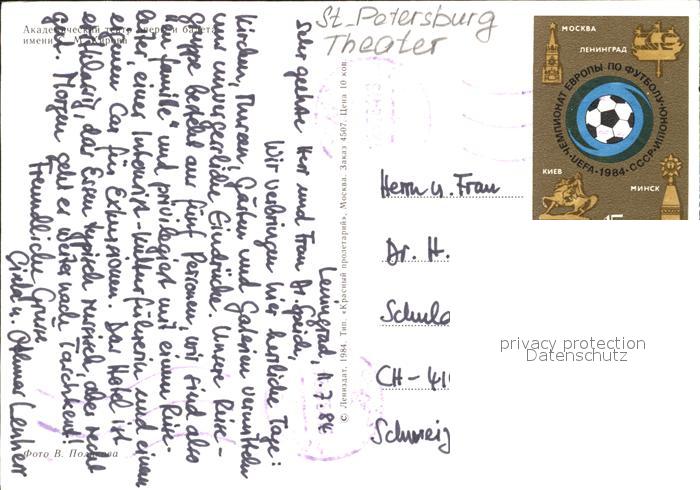 St_Petersburg
Theater
Академический театр оперы и балета
имени С. М. Кирова
Leningrad, 11.7.86
Sehr geehrte Herr und Frau Dr.
Wir verbringen hier herrliche Tage:
Kirchen, Museen, Gärten und Galerien vermitteln
uns unvergessliche Eindrücke. Unsere Reise-
gruppe besteht aus fünf Personen, wir sind also
"en famille" und privilegiert mit einem Reise-
leiter, einer Intourist-Kulturführerin und einem
eigenen Car für Exkursionen. Das Hotel ist
erstklassig, das Essen typisch russisch, aber recht
gut. Morgen geht es weiter nach Taschkent!
Freundliche Grüsse
Gisela u. Othmar Lenherr
Фото В. Полякова
© Лениздат, 1984. Тип. «Красный пролетарий», Москва. Заказ 4507. Цена 10 коп.
МОСКВА
ЛЕНИНГРАД
ЧЕМПИОНАТ ЕВРОПЫ ПО ФУТБОЛУ·ЮНОШИ
·UEFA·1984·СССР·
КИЕВ
МИНСК
15
Herrn u. Frau
Dr. H.
Schul
CH-41
Schweiz
privacy protection
Datenschutz